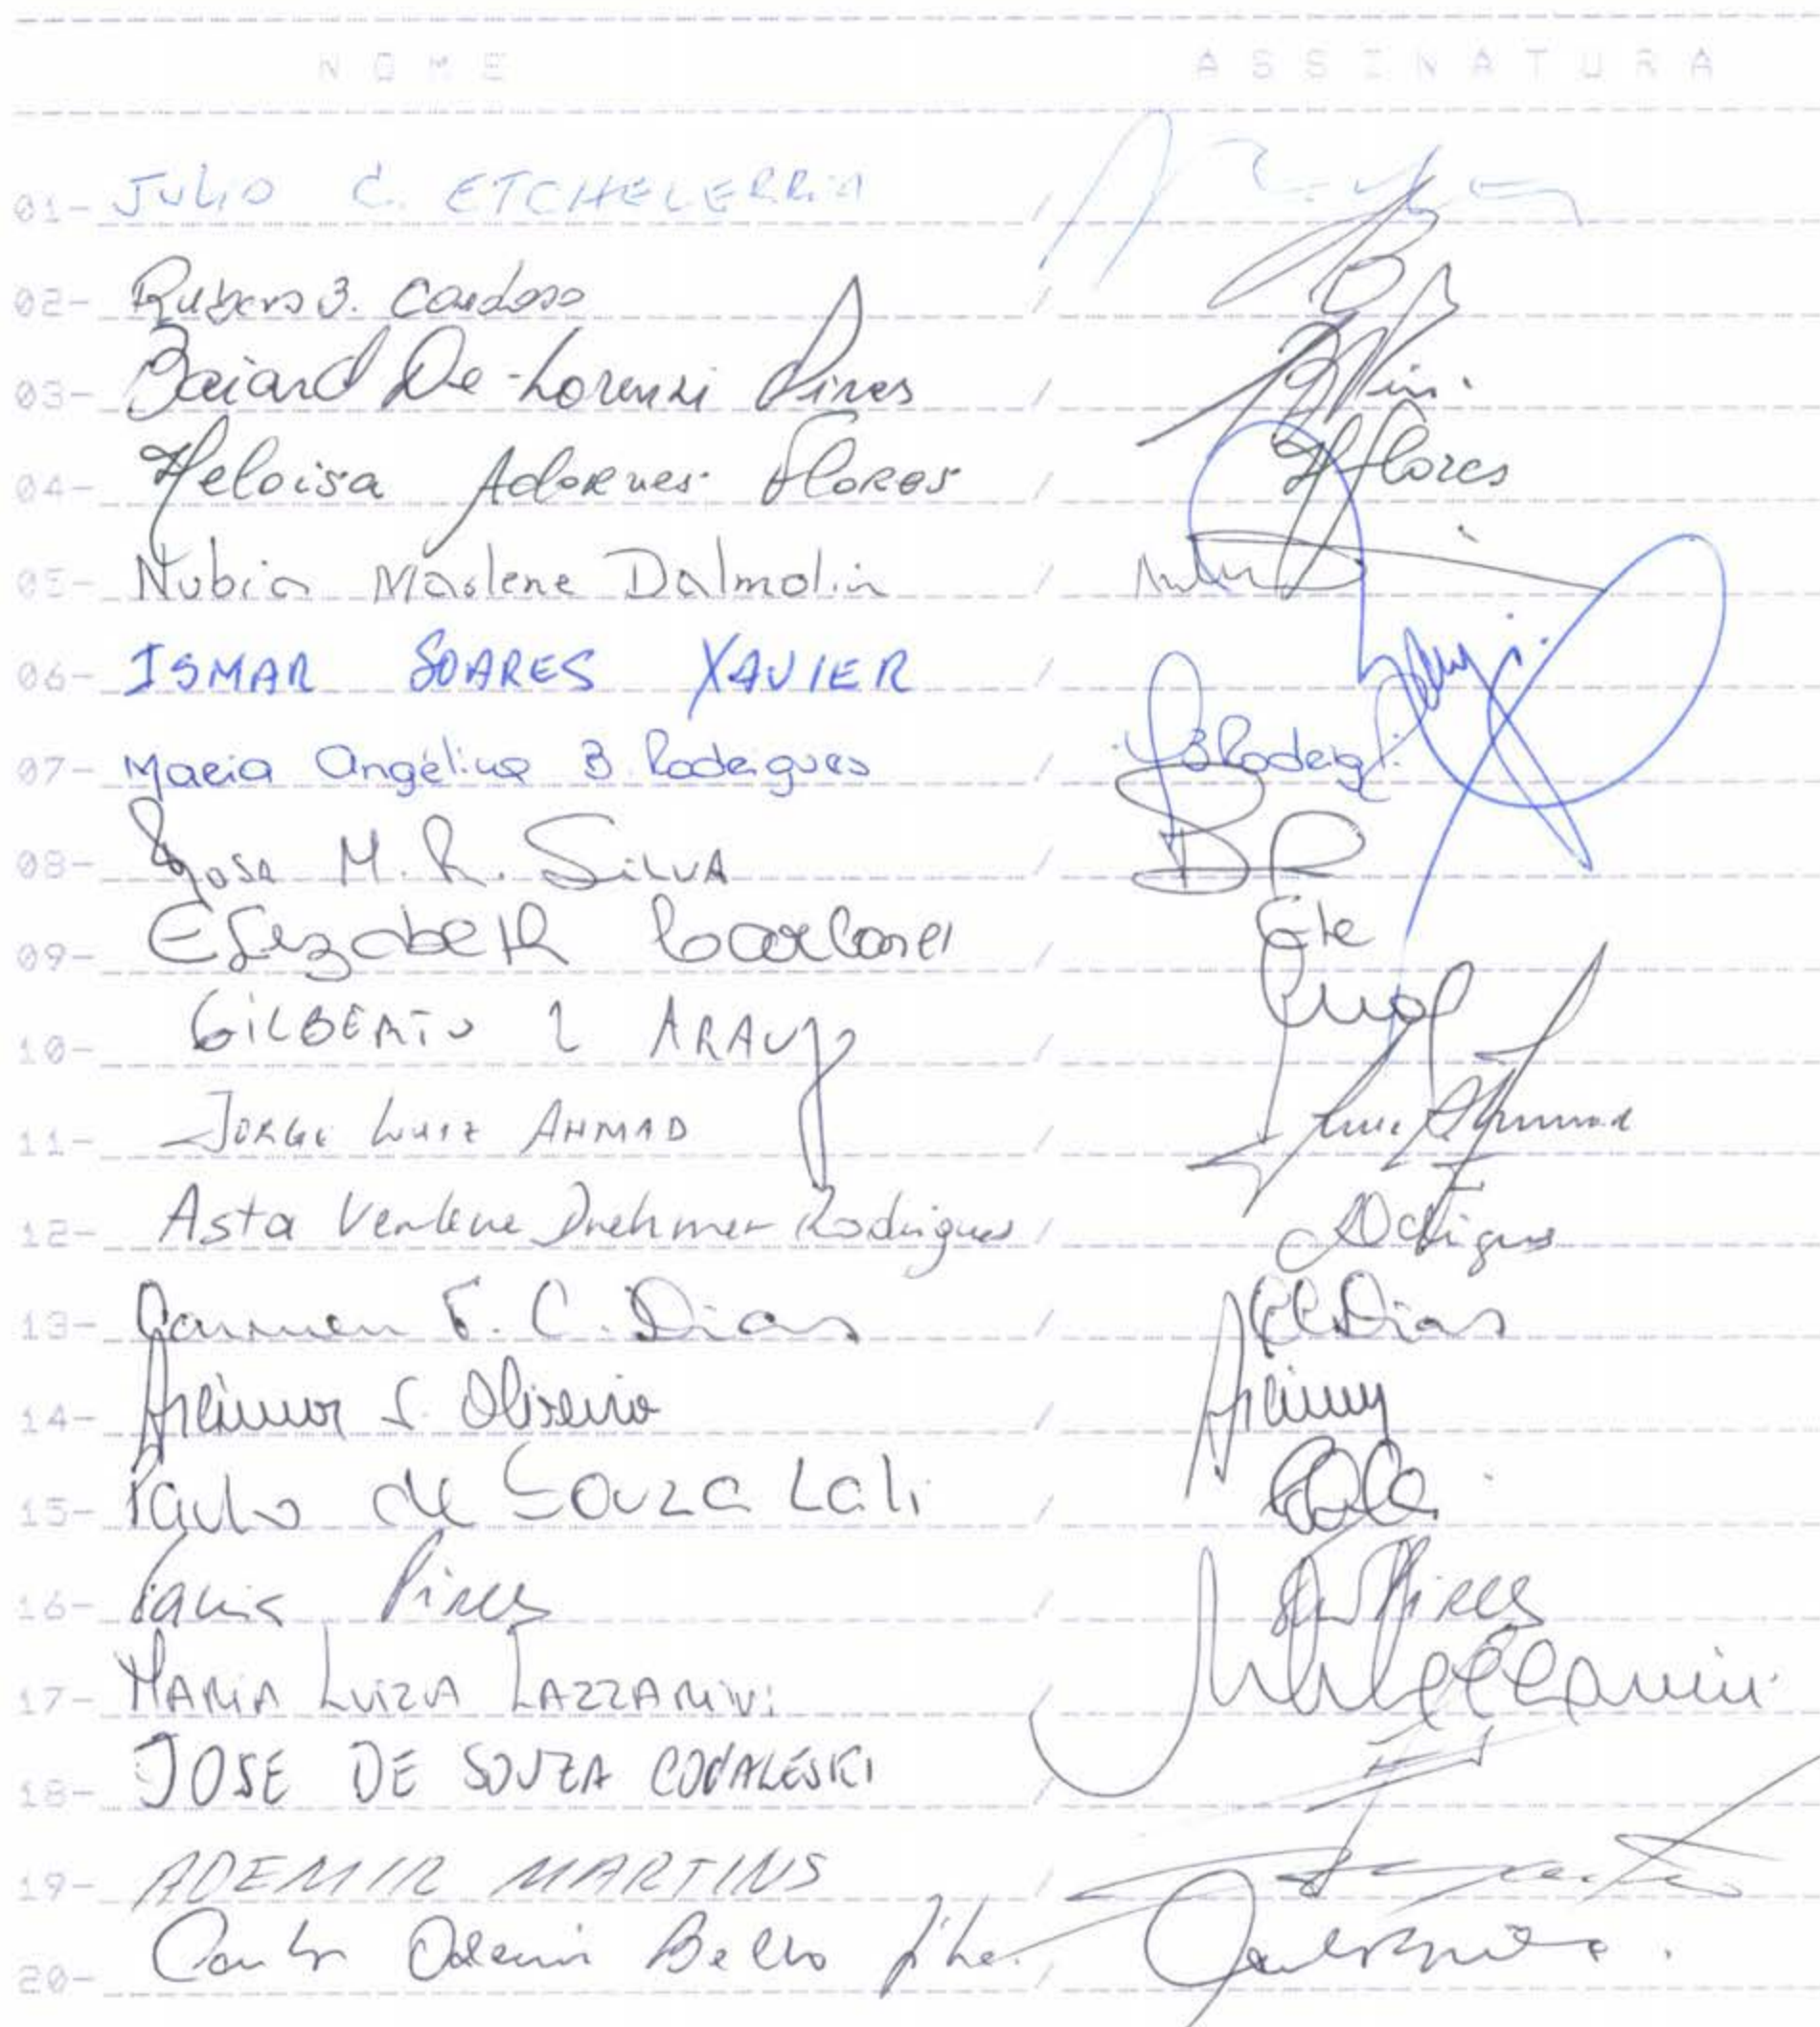 NOME ASSINATURA
01- JULIO C. ETCHELERRIA /
02- Rubens B. Cardoso /
03- Baiard De-Lorenzi Pires /
04- Heloisa Adornes Flores / HFlores
05- Nubia Maslene Dalmolin /
06- ISMAR SOARES XAVIER /
07- Maria Angélica B. Rodrigues /
08- Jose M. R. SILVA /
09- Elizabeth / Ete
10- GILBERTO L ARAUJO /
11- JORGE LUIZ AHMAD / Luiz Ahmad
12- Asta Verlene Drehmer Rodrigues /
13- Carmen F. C. Dias / CCDias
14- S. Oliveira /
15- Paulo de Souza Lali /
16- Tania Pires / Pires
17- MARIA LUIZA LAZZARINI /
18- JOSE DE SOUZA COVALESKI /
19- ADEMIR MARTINS /
20- Bello /